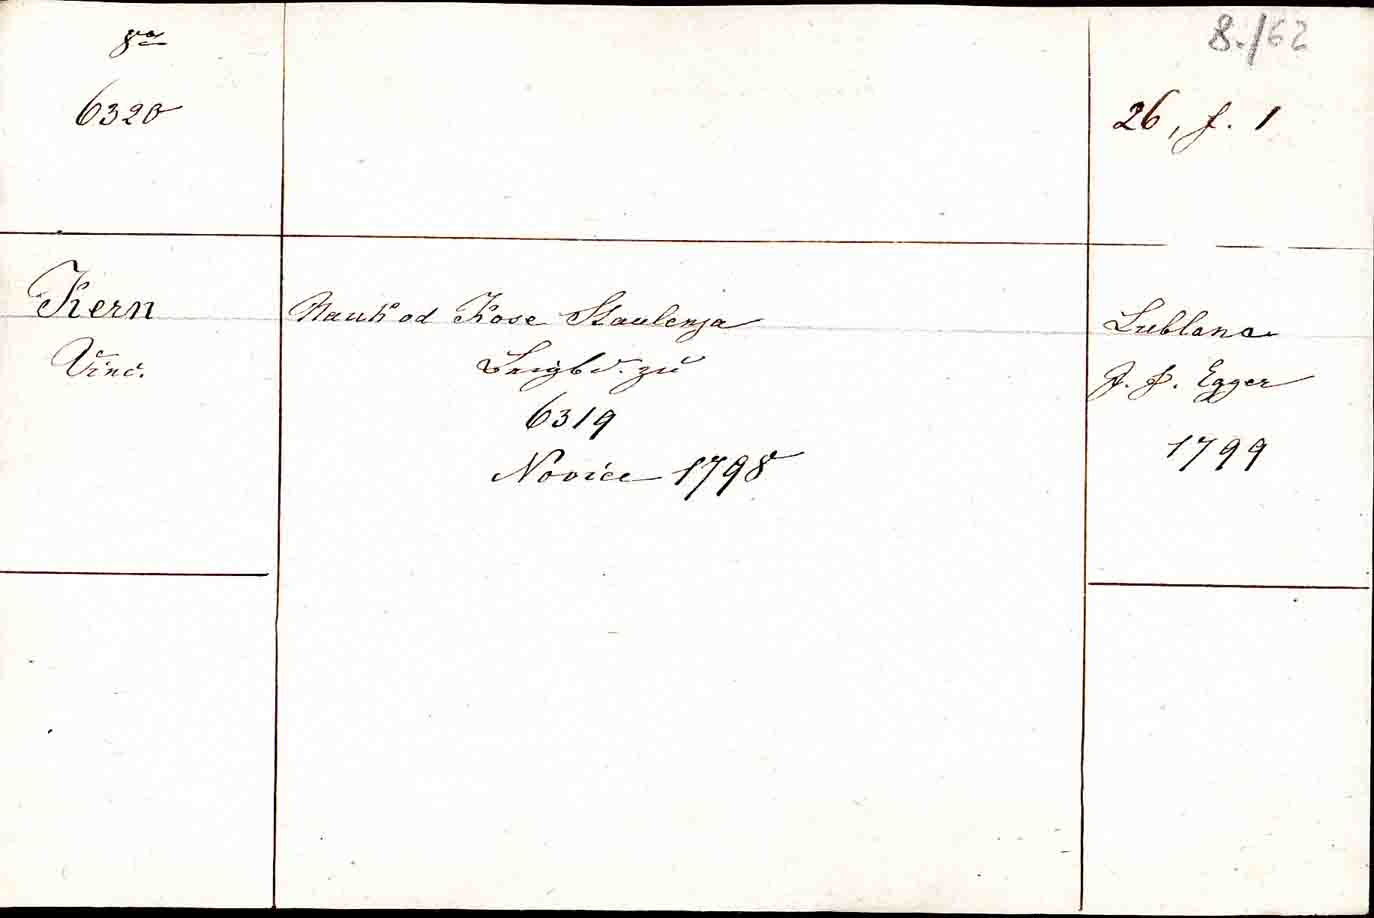 8°
6320
8./62
26, f. 1
Kern
Vinc.
Nauk od Kose Staulenja
Beigbd. zu
6319
Novice 1798
Lublana
J. F. Egger
1799